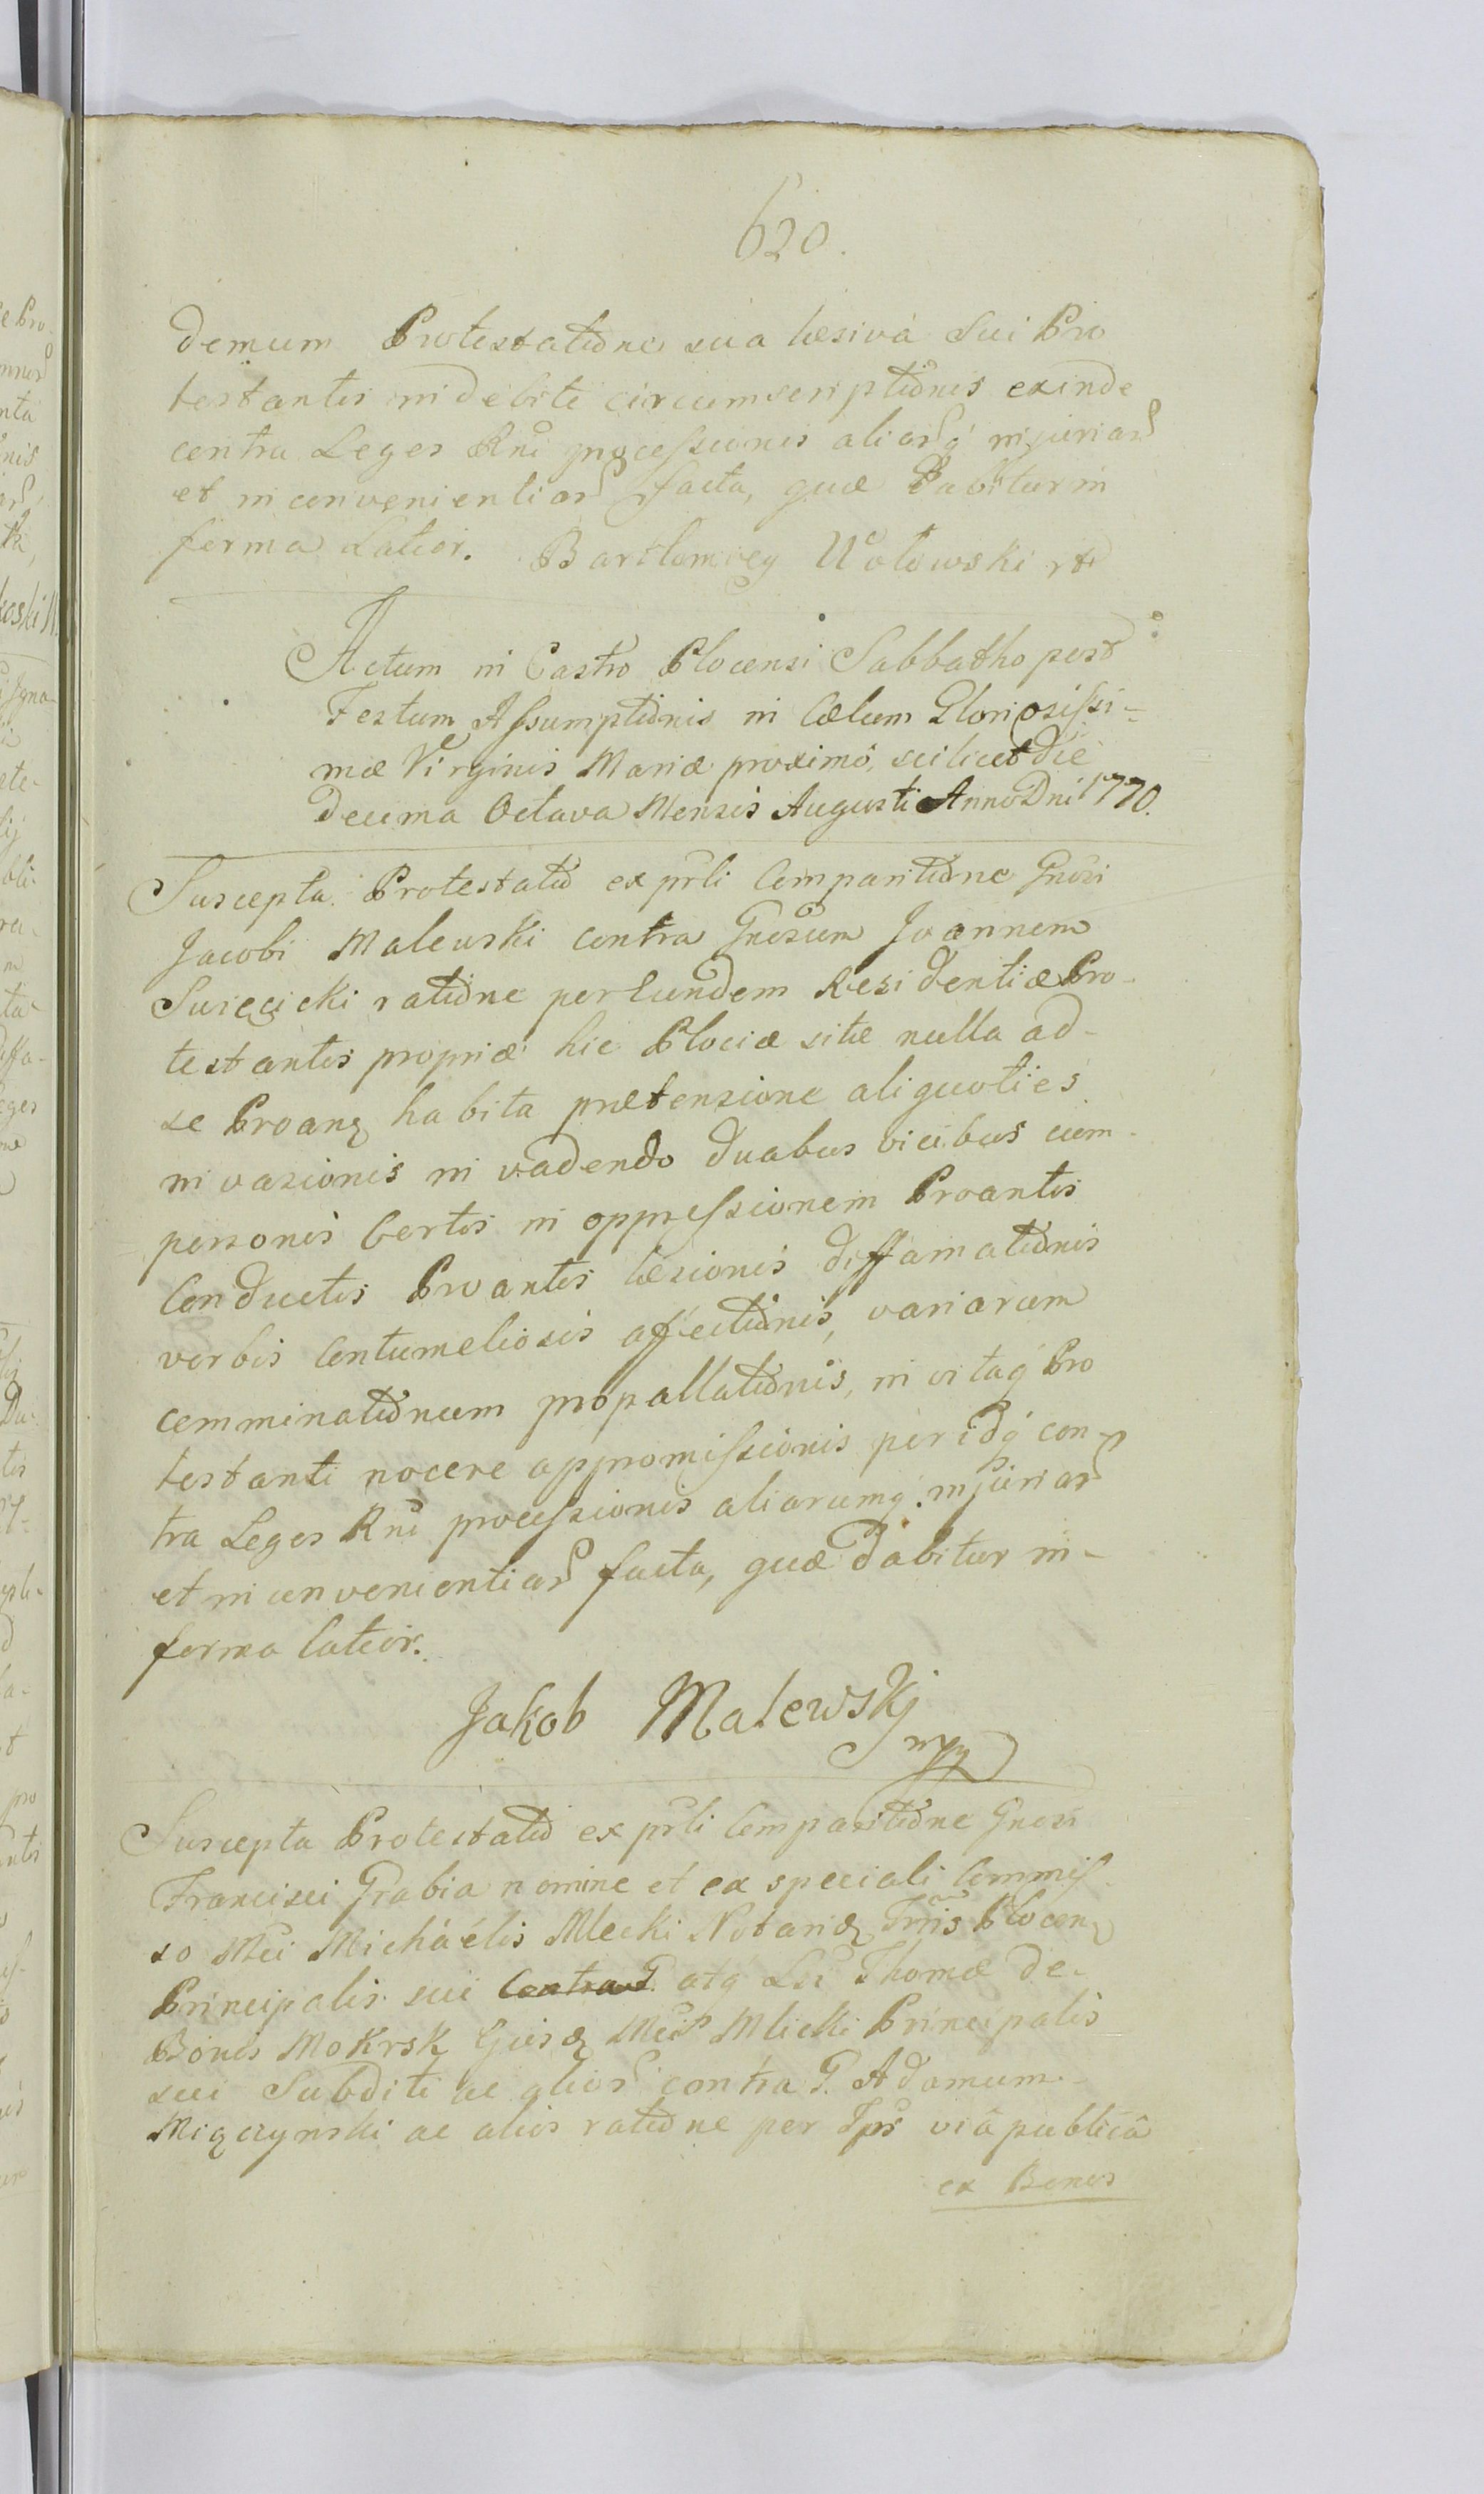 620.
demum Protestatiõne sua læsivà Sui Pro
testantis indebite circumscriptiõnis exinde
contra Leges Rni processionis aliarq́ injuriar
et inconvenientiar facta, quæ Dabitur in
forma Latior. Bartlomiey Wołowski
Actum in Castro Plocensi Sabbatho post
Festum Assumptiõnis in Cœlum Gloriosissi-
mæ Virginis Mariæ proximô, scilicet die
Decima Octava Mensis Augusti Annô Dni 1770.
Suscepta Protestatiõ ex prli Comparitiõne Gnosi
Jacobi Malewski contra Gnosum Joannem
Suięcicki ratiõne per Eundem Residentiæ Pro-
testantis propriæ hic Plociæ sitæ nulla ad-
se Proanę habita prætensione aliquoties
invasionis invadendo duabus vicibus cum-
personis Certis in oppressionem Proantis
Conductis Proantis læsionis diffamatiõnis
verbis Contumeliosis affectiõnis, variarum
comminatiõnum propallatiõnis, in vitaq́ Pro
testanti nocere appromissionis per idq́ con-
tra Leges Rni processionis aliarumq́ injuriar
et inconvenientiar facta, quæ dabitur in-
forma latior.
Jakob Malewskj
mpp
Suscepta Protestatiõ ex prli Comparitiõne Gnosi
Francisci Grabia nomine et ex speciali Commis
so Mci Michäélis Mlecki Notarię Trris Plocenę
Principalis sui Contra G. atq́ Lri Thomæ de-
Bonis Mokrsk Gusę Mci Mlicki Principalis
sui Subditi ac alior contra G. Adamum-
Miączynski ac alios ratiõne per Ipõs viâ publicâ
ex Bonis